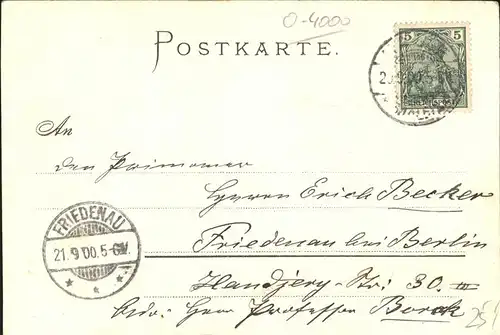 0-4000
POSTKARTE.
5 5
An
den Primaner
Herrn Erich Becker
Friedenau bei Berlin
Handjery-Str: 30. III
Adr: Herr Professor Borck
FRIEDENAU
21.9.00.5-6N.
25